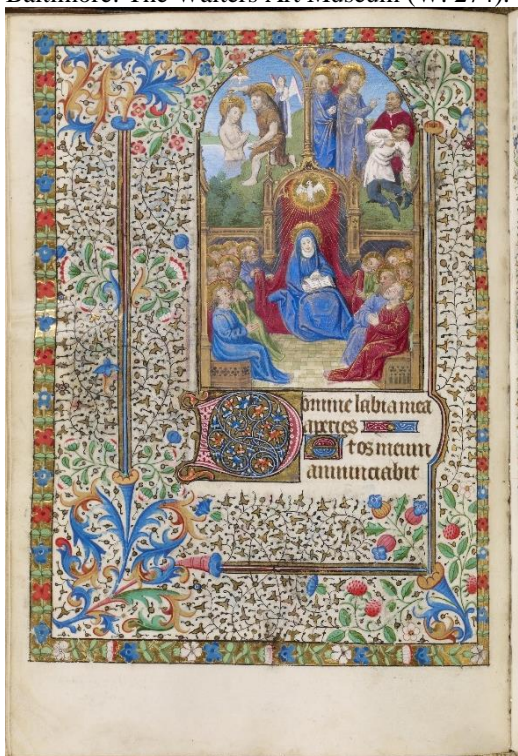 Baltimore. The Walters Art Museum (W. 274).
Domine labia mea
aperies
Et os meum
annunciabit